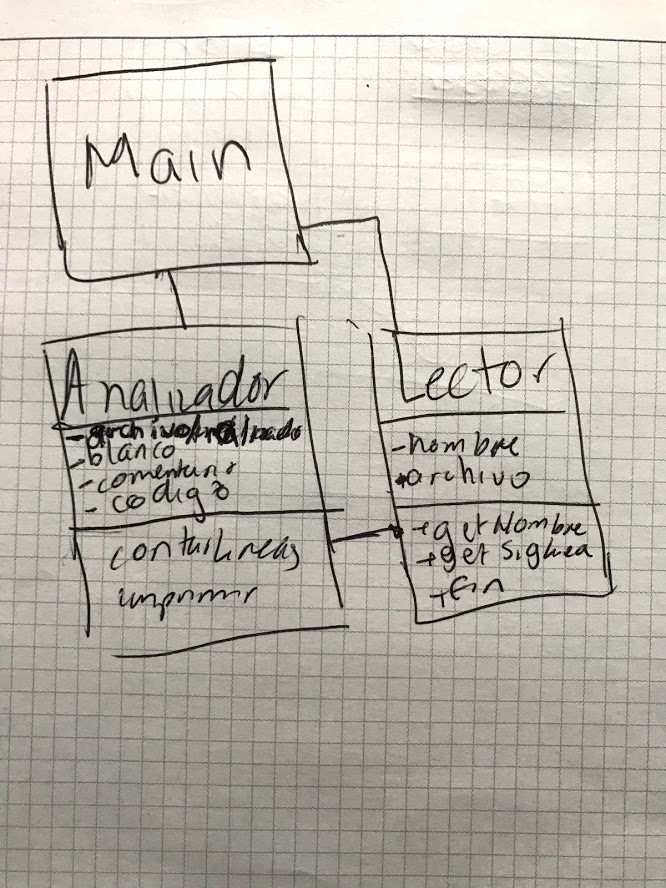 Main
Analizador
- archivoAnalizado
- blanco
- comentario
- codigo
contarLineas
imprimir
Lector
- nombre
archivo
+ getNombre
+ get SigLinea
+ Fin